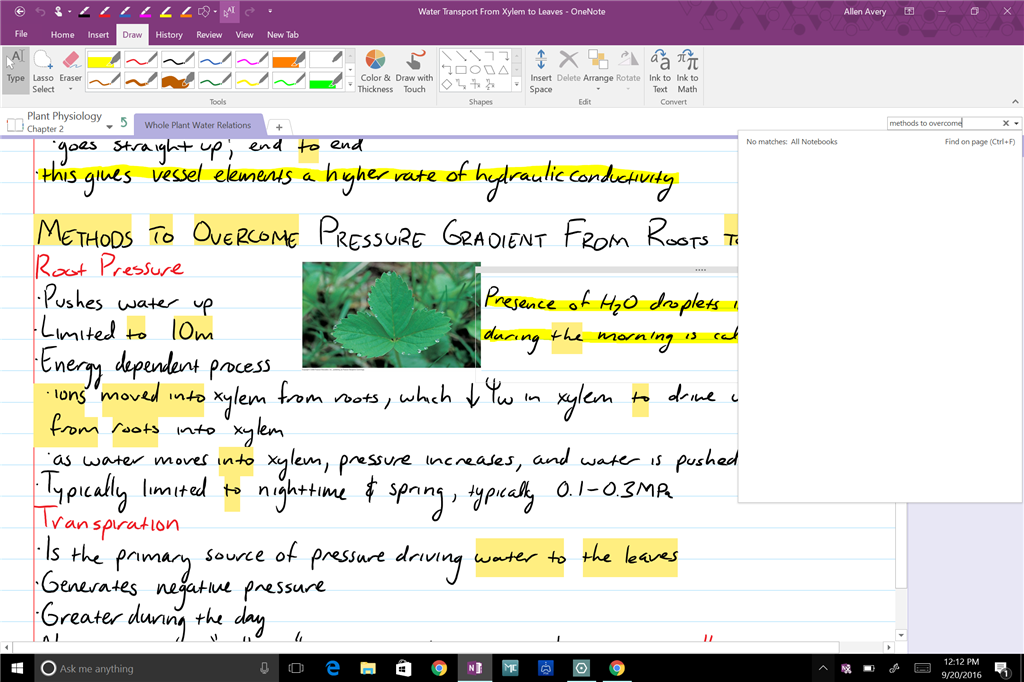 Water Transport From Xylem to Leaves - OneNote
Allen Avery
File Home Insert Draw History Review View New Tab
Type
Lasso Select
Eraser
Color & Thickness
Draw with Touch
Insert Space
Delete
Arrange
Rotate
Ink to Text
Ink to Math
Tools
Shapes
Edit
Convert
Plant Physiology
Chapter 2
5
Whole Plant Water Relations
methods to overcome
No matches: All Notebooks
Find on page (Ctrl+F)
·goes straight up; end to end
·this gives vessel elements a higher rate of hydraulic conductivity
METHODS TO OVERCOME PRESSURE GRADIENT FROM ROOTS TO
Root Pressure
·Pushes water up
·Limited to 10m
·Energy dependent process
Presence of H₂O droplets
during the morning is
·ions moved into xylem from roots, which ↓ Ψw in xylem to drive
from roots into xylem
·as water moves into xylem, pressure increases, and water is pushed
·Typically limited to nighttime & spring, typically 0.1-0.3MPa
Transpiration
·Is the primary source of pressure driving water to the leaves
·Generates negative pressure
·Greater during the day
Ask me anything
12:12 PM
9/20/2016